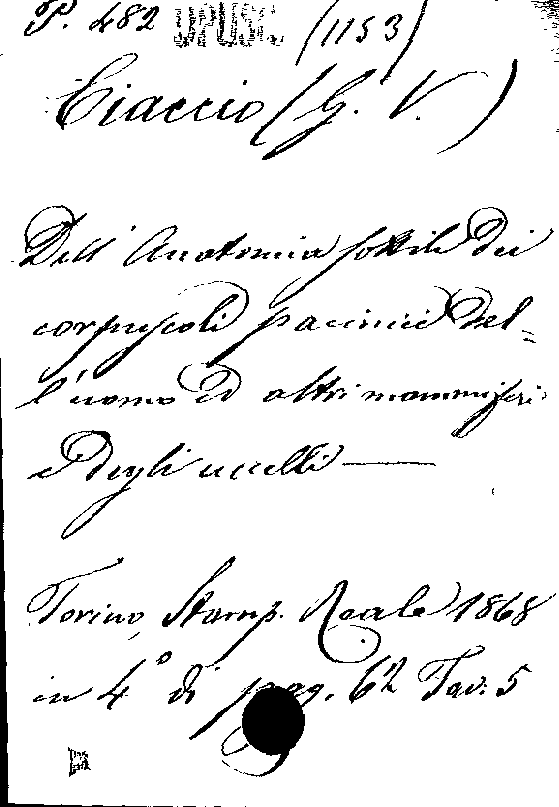 P. 482 OPUSC. (1153)
Ciaccio (G. V.)
Dell' Anatomia sottile dei
corpuscoli pacinici del-
l'uomo ed altri mammiferi
e degli uccelli —
Torino, Stamp. Reale 1868
in 4° di pag. 62 Tav: 5